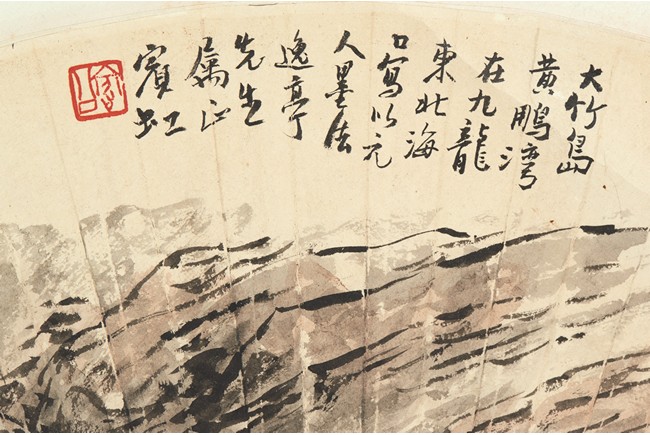 大竹島
黄鵬湾
在九龍
東北海
口寫以元
人墨法
逸亭
先生
属正
賓虹